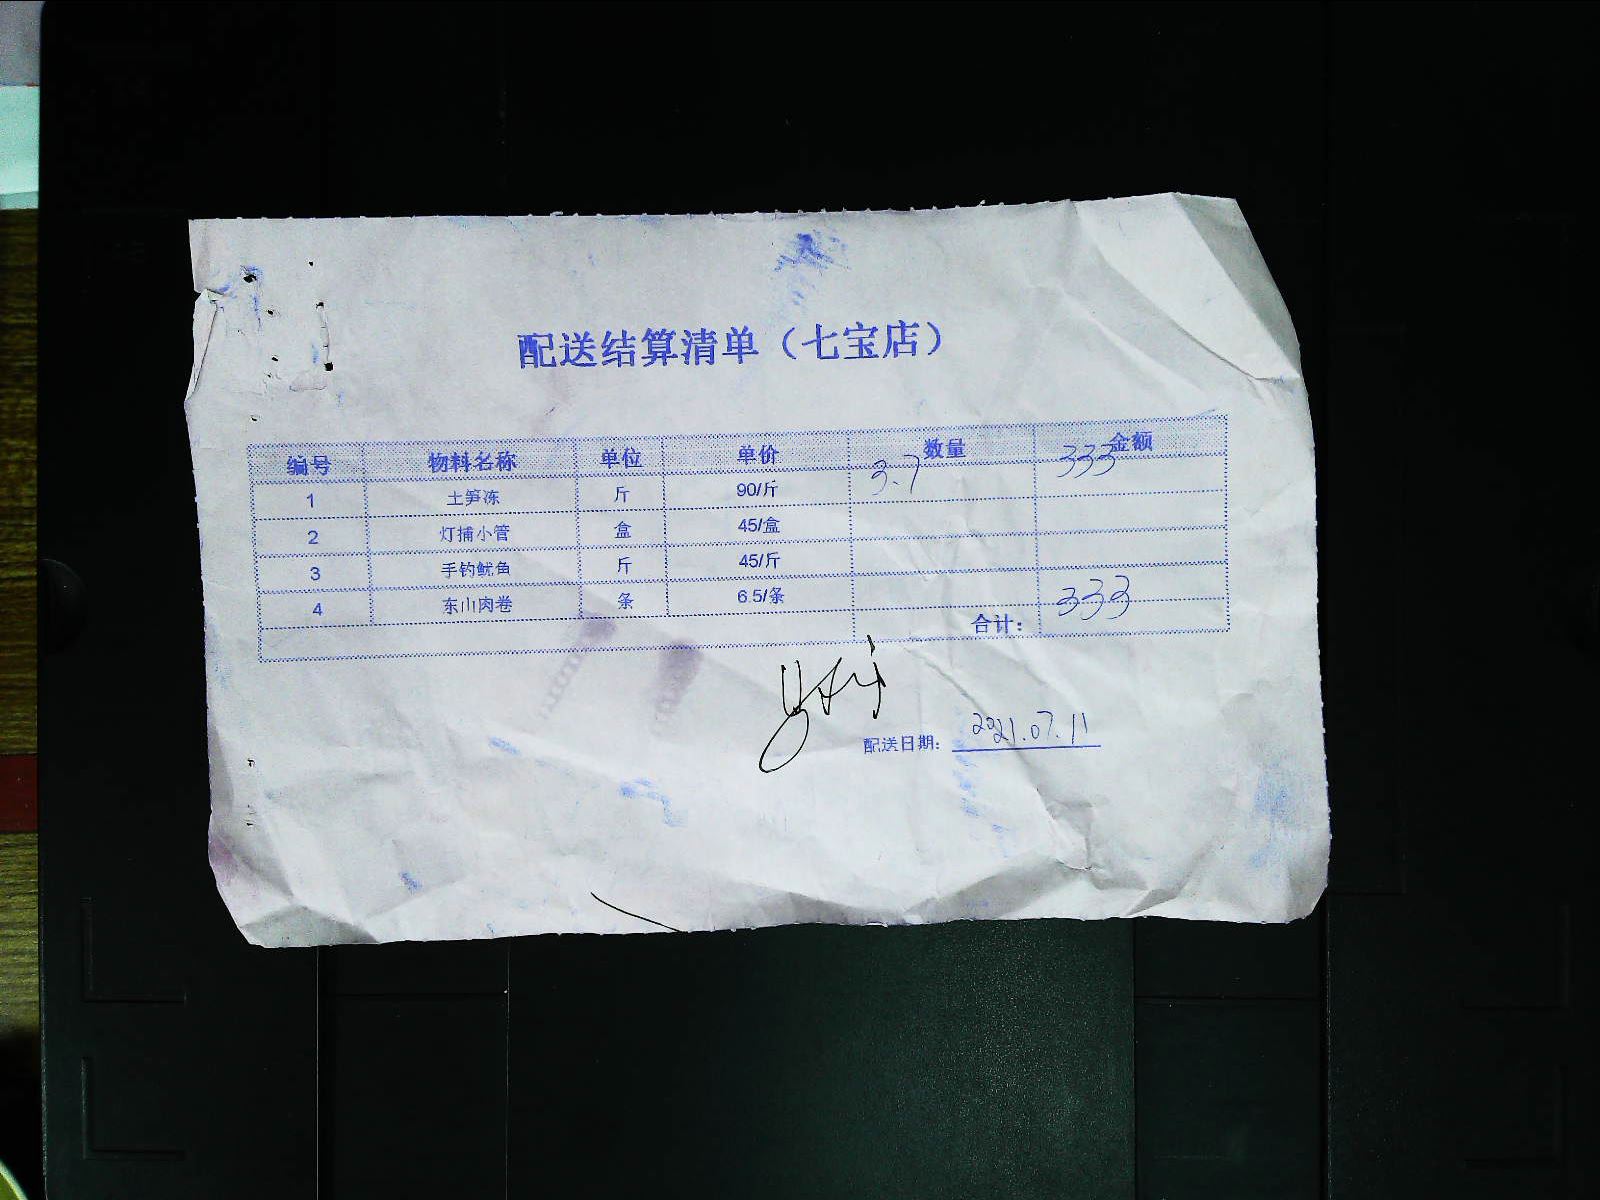 配送结算清单（七宝店）
编号 物料名称 单位 单价 数量 金额
1 土笋冻 斤 90/斤 3.7 333
2 灯捕小管 盒 45/盒
3 手钓鱿鱼 斤 45/斤
4 东山肉卷 条 6.5/条
合计： 333
配送日期： 2021.07.11